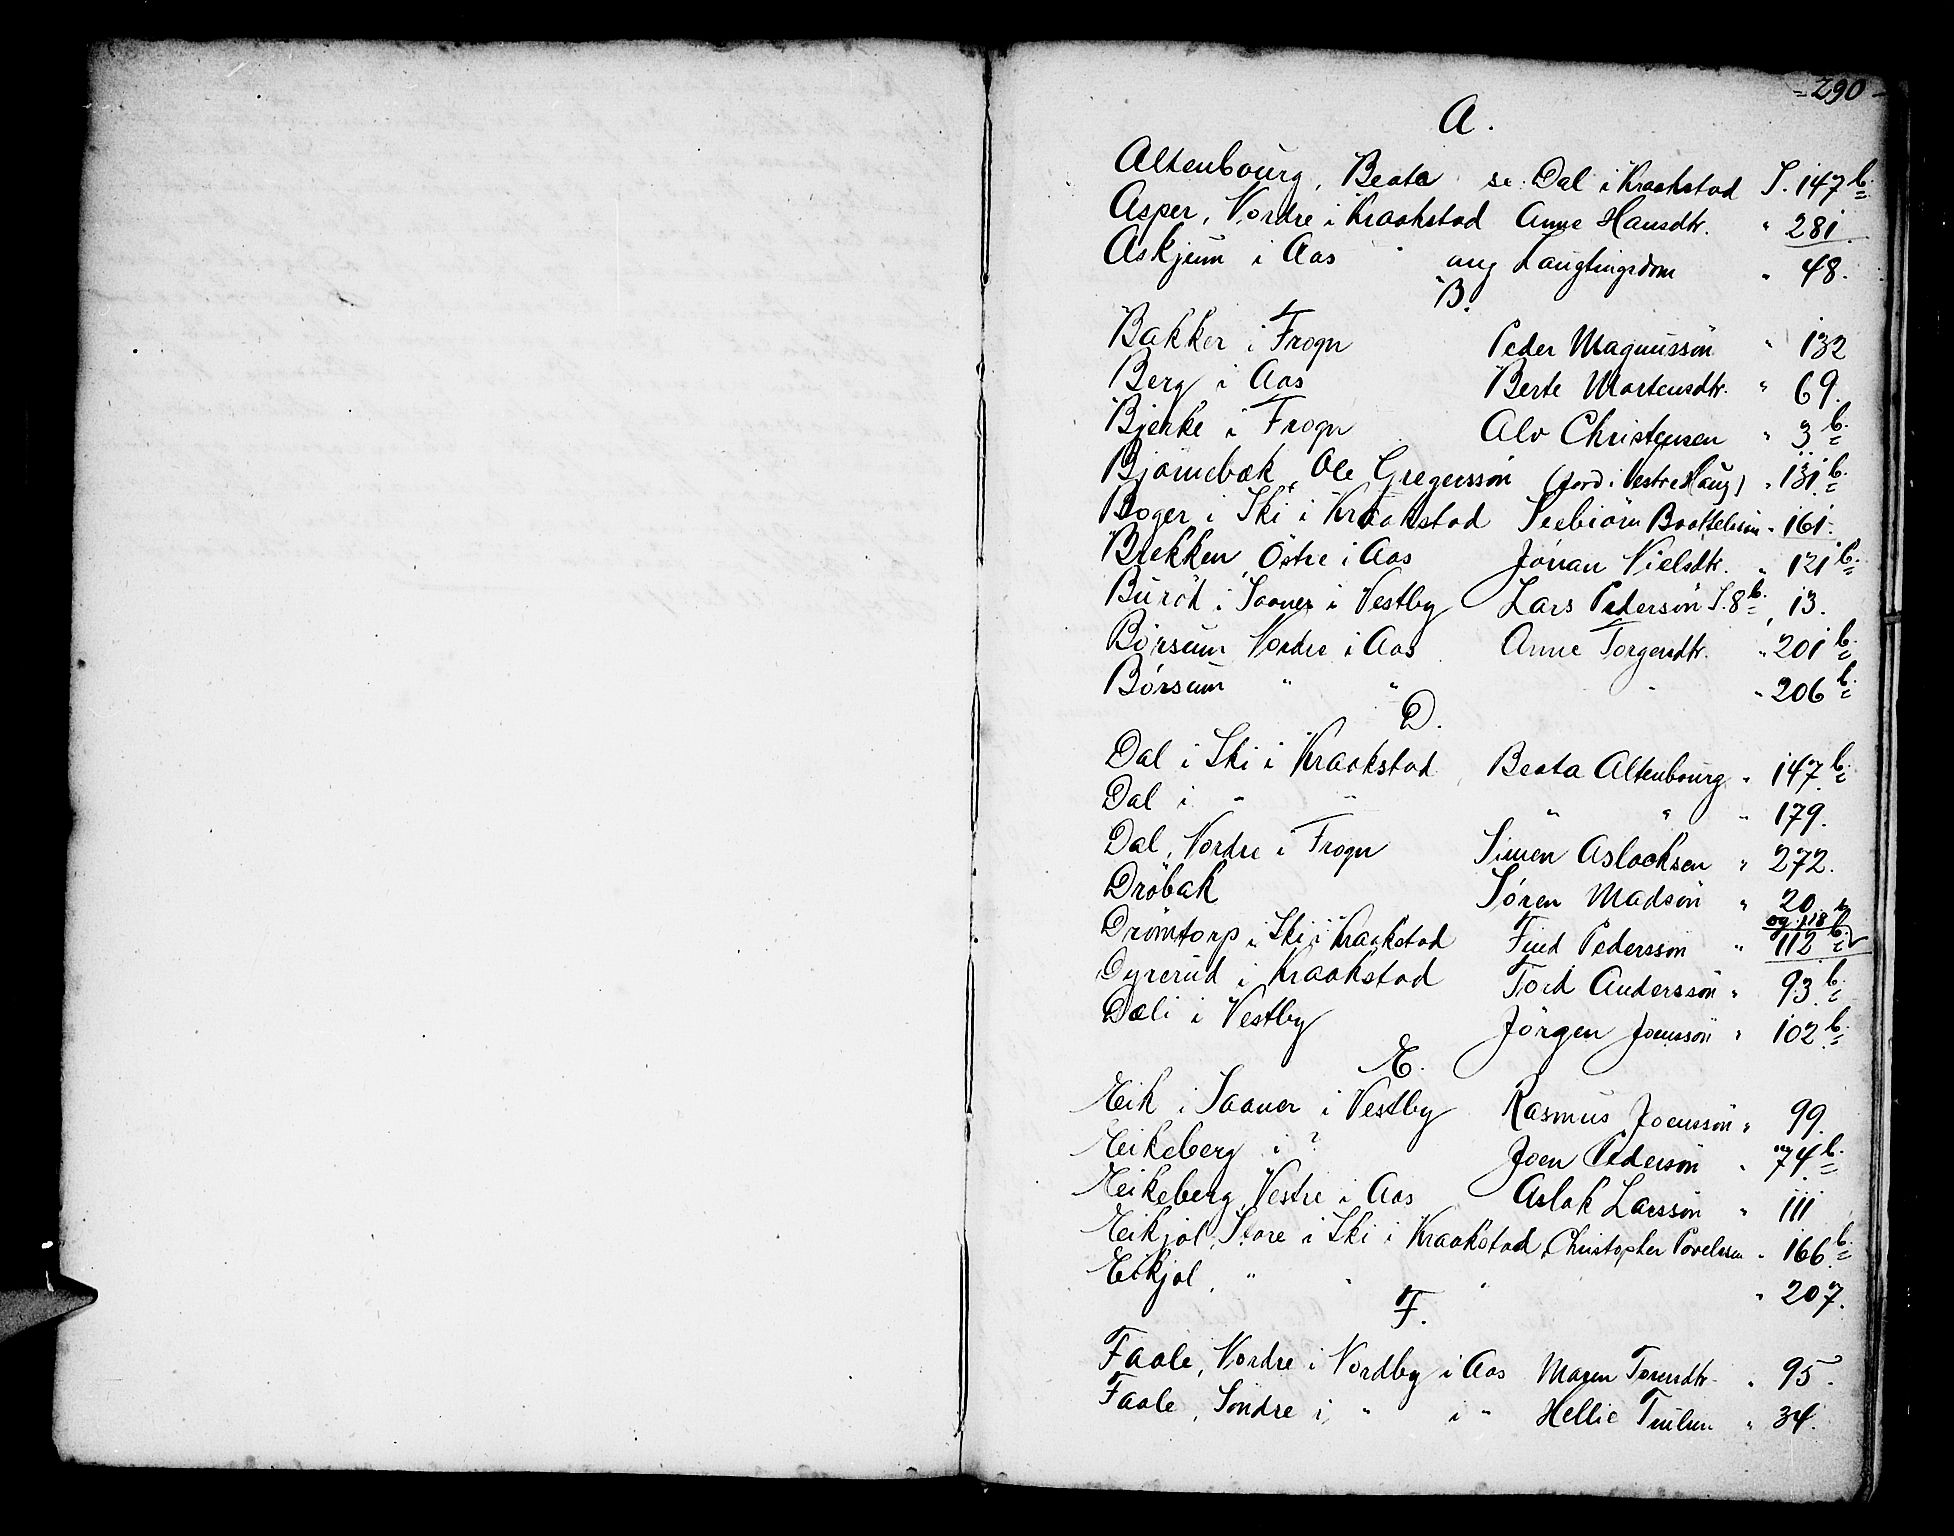 = 290 =
A.
Altenbourg, Beata se. Dal i Kraakstad S. 147 b.
Asper, Nordre i Kraakstad Anne Hansdtr. " 281.
Askjum i Aas " ang Laugtingsdom " 48.
B.
Bakker i Frogn Peder Magnussön " 132
Berg i Aas Berte Mortensdtr. " 69.
Bjerke i Frogn Alv Christensen " 3 b.
Bjørnebæk, Ole Gregerssön (Jord i Vestre Haug) " 131 b.
Boger i Ski i Kraakstad " 161.
Brekken Östre i Aas Joran Nielsdtr. " 121 b.
Buröd i Saaner i Vestby Lars Pedersön S. 8 b., 13.
Börsum Nordre i Aas Anne Torgersdtr. " 201 b.
Börsum " " " " 206 b.
D.
Dal i Ski i Kraakstad, Beata Altenbourg " 147 b.
Dal i " " " " " 179.
Dal, Nordre i Frogn Simen Aslacksen " 272.
Dröbak Sören Madsön " 20.
og 118 b.
Drömtorp i Ski i Kraakstad Find Pederssön " 112 b.
Dyrerud i Kraakstad Tord Anderssön " 93 b.
Dæli i Vestby Jörgen Joenssön " 102 b.
E.
Eik i Saaner i Vestby Rasmus Joenssön " 99.
Eikeberg i ? Joen Pedersön " 74 b.
Eikeberg, Vestre i Aas Aslak Larssön " 111
Eikjol, Store i Ski i Kraakstad, Christopher Povelsen " 166 b.
Eikjol, " " " " 207.
F.
Faale, Nordre i Nordby i Aas Maren Toresdtr. " 95.
Faale, Söndre i " i " Hellie " 34.